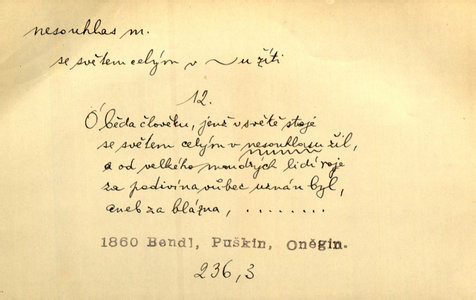 nesouhlas m.
se světem celým v ~u žíti
12.
Ó běda člověku, jenž v světě stoje
se světem celým v nesouhlasu žil,
a od velkého moudrých lidí roje
za podivína vůbec uznán byl,
aneb za blázna, ........
1860 Bendl, Puškin, Oněgin.
236,3